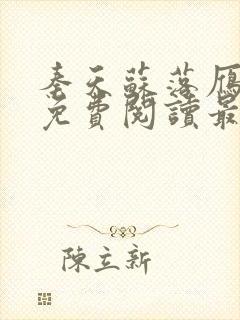 秦天蘇落雁
免費閱讀最
陳立新